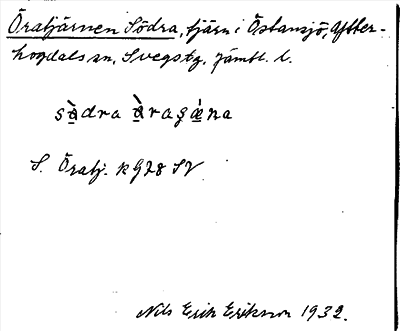 Öratjärnen Södra, tjärn i Östansjö, Ytter-
hogdals sn, Svegs tg, Jämtl. l.
sòdra
S. Öratj. k 928 SV
Nils Erik Erikson 1932.